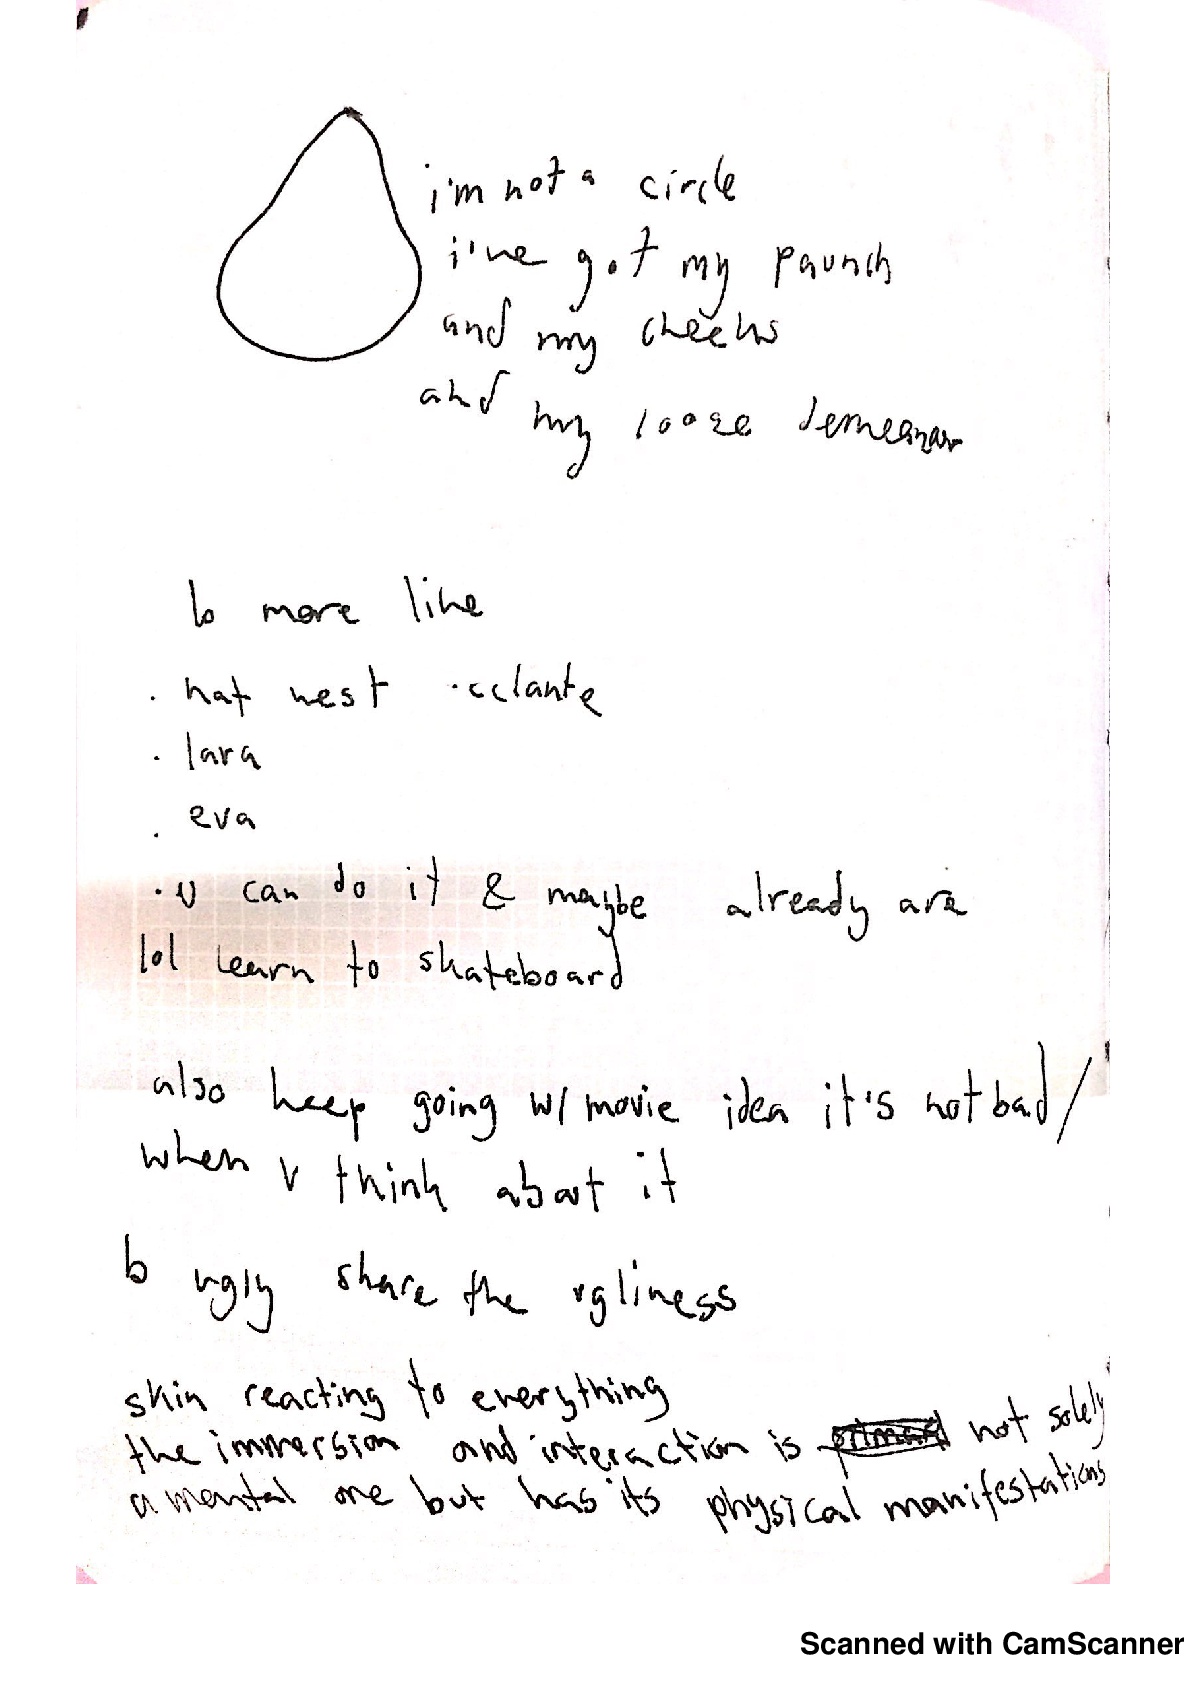 i'm not a circle
i've got my paunch
and my cheeks
and my loose demeanor
b more like
· nat west · cclante
· lara
· eva
· u can do it & maybe already are
lol learn to skateboard
also keep going w/ movie idea it's not bad/
when u think about it
b ugly share the ugliness
skin reacting to everything
the immersion and interaction is not solely
a mental one but has its physical manifestations
Scanned with CamScanner